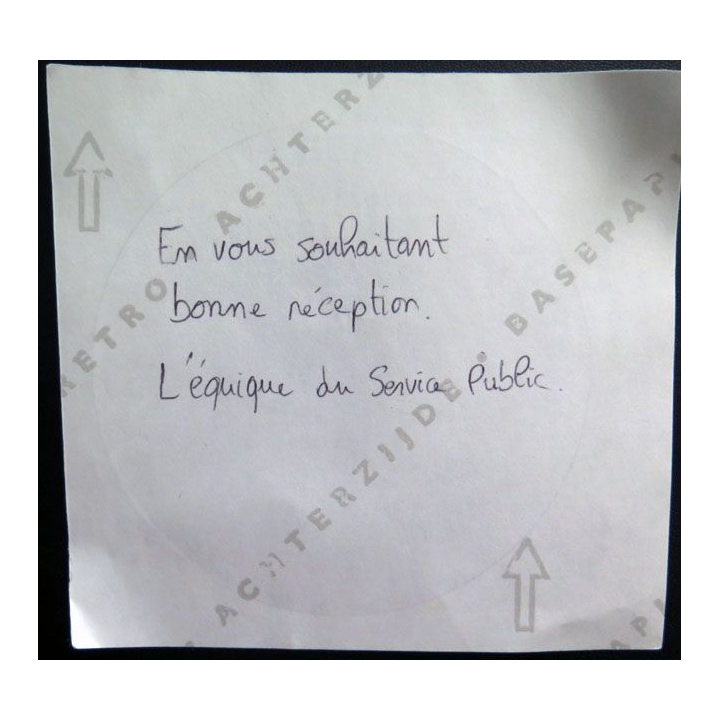 En vous souhaitant
bonne réception.
L'équique du Service Public.
RETRO ACHTERZ
ACHTERZIJDE • BASEPAPI
API